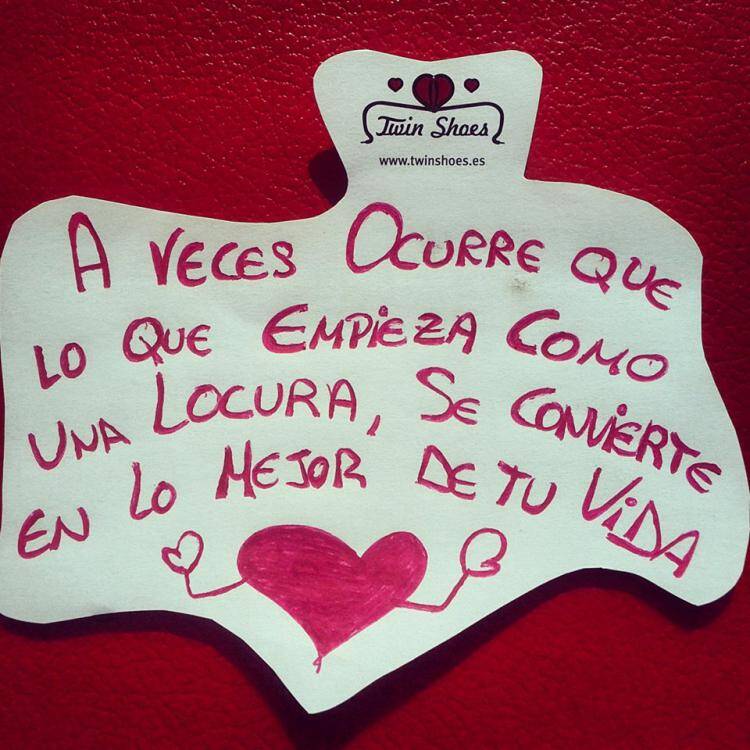 Twin Shoes
www.twinshoes.es
A VECES OCURRE QUE
LO QUE EMPIEZA COMO
UNA LOCURA, SE CONVIERTE
EN LO MEJOR DE TU ViDA